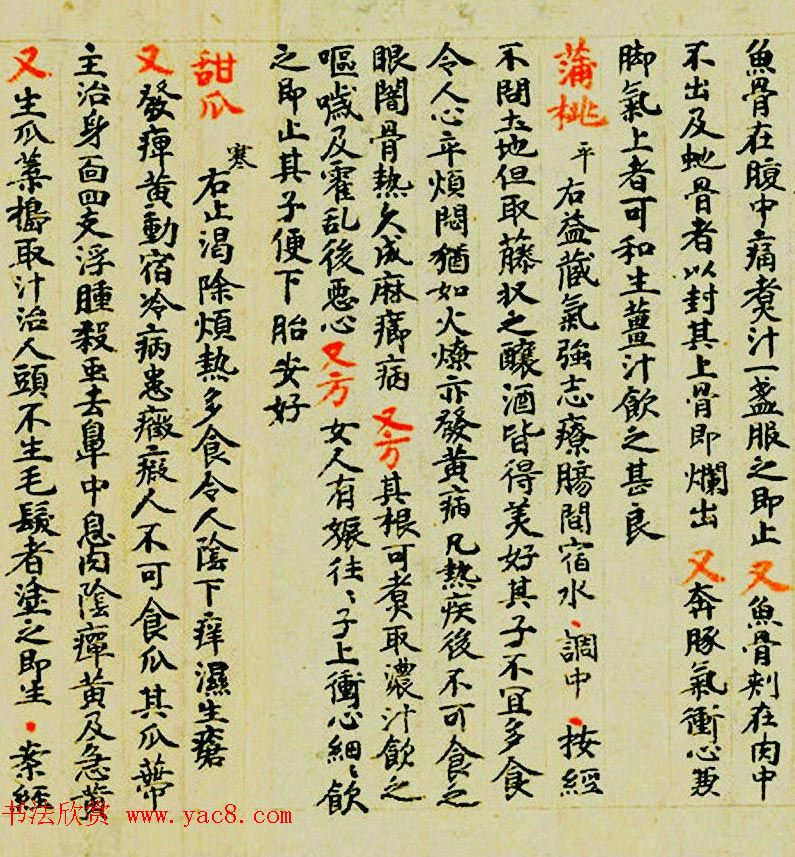 魚骨在腹中痛煮汁一盞服之即止又魚骨刾在肉中
不出及虵骨者以封其上骨即爛出又奔豚氣衝心兼
脚氣上者可和生薑汁飲之甚良
蒲桃平右益藏氣強志療膓間宿水·調中·按經
不問土地但取藤收之釀酒皆得美好其子不冝多食
令人心卒煩悶猶如火燎亦發黃病凡熱疾後不可食之
眼闇骨熱久成麻癤病又方其根可煮取濃汁飲之
嘔噦及霍乱後惡心又方女人有娠往〻子上衝心細〻飲
之即止其子便下胎安好
甜瓜寒右止渴除煩熱多食令人陰下痒濕生瘡
又發癉黃動宿冷病患癥癖人不可食瓜其瓜蔕
主治身面四支浮腫殺蟲去鼻中息肉陰癉黃及急黃
又生瓜葉搗取汁治人頭不生毛髮者塗之即生·案經
书法欣赏 www.yac8.com